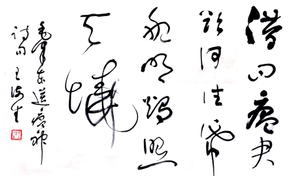 借问瘟君
欲何往纸
船明烛照
天烧
毛泽东送瘟神
诗句 王